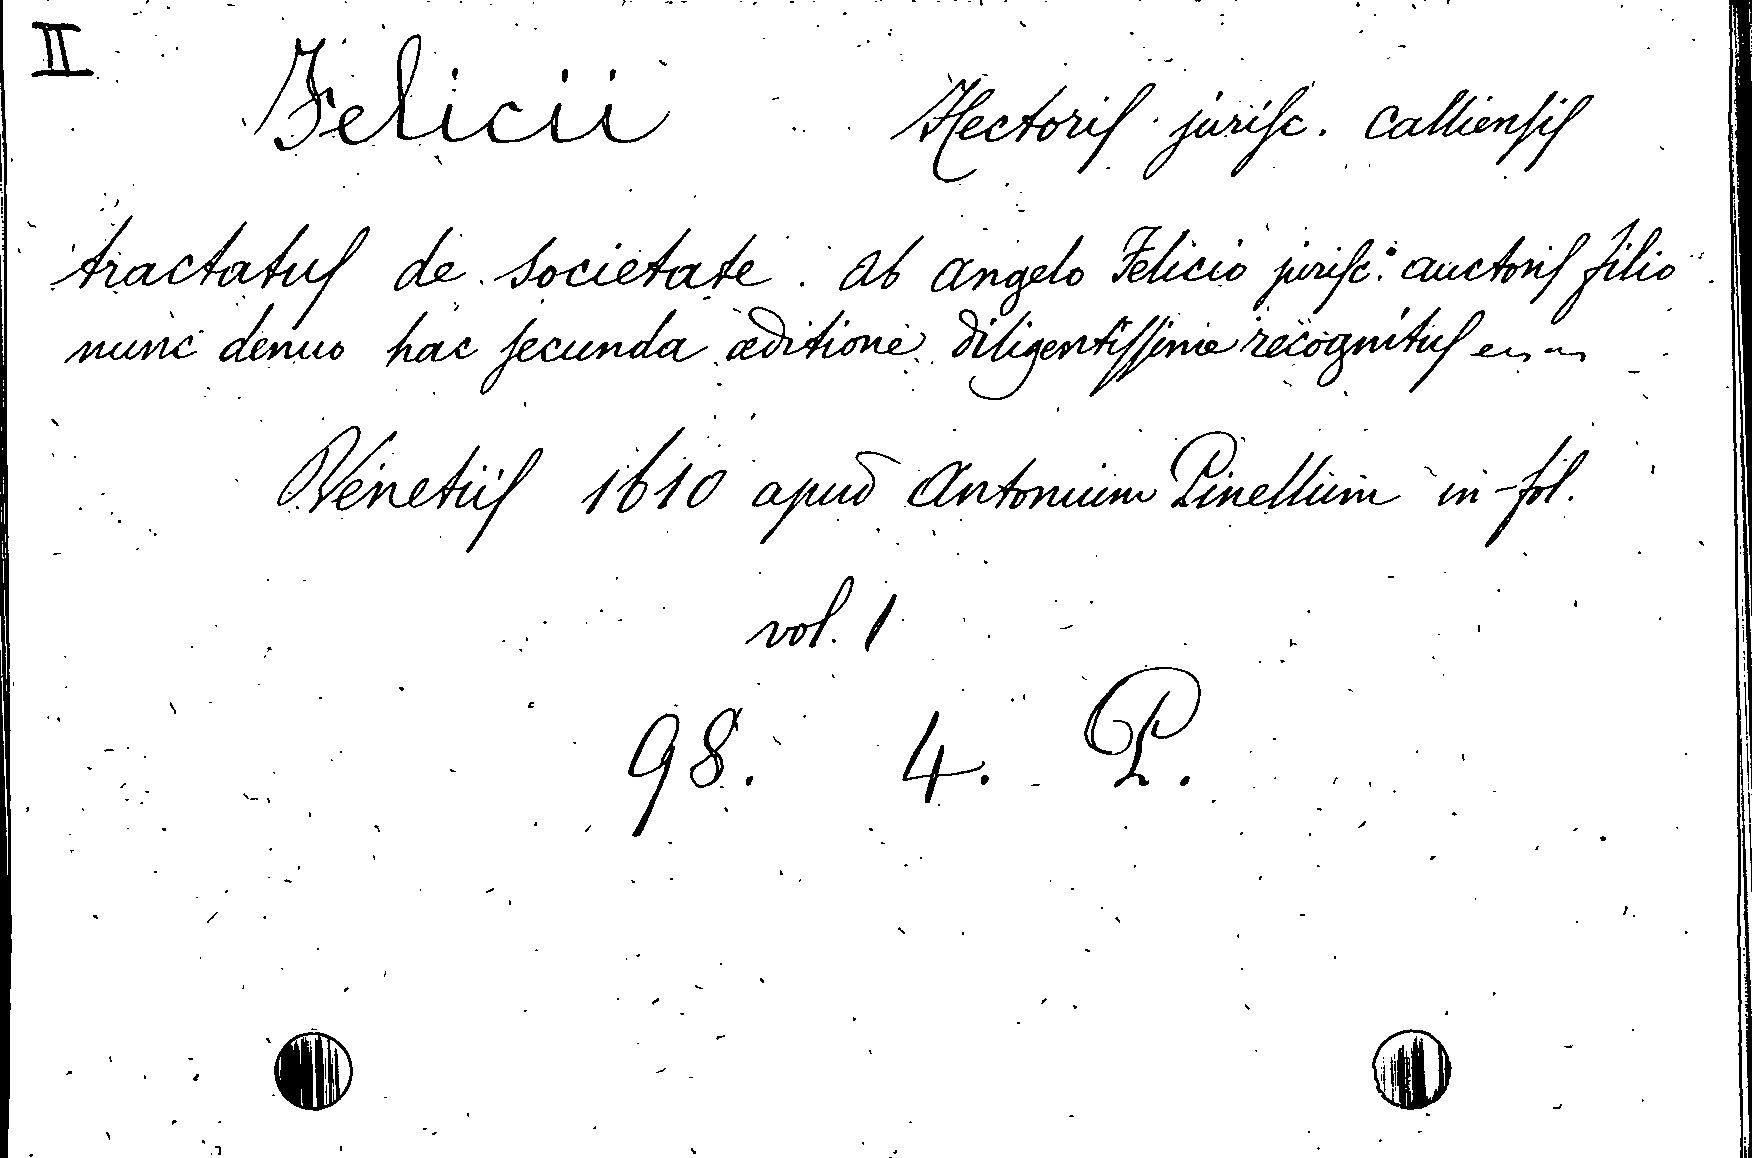 II
Felicii Hectoris jurisc. Calliensis
tractatus de societate. Ab Angelo Felicio jurisc: auctoris filio
nunc denuo hac secunda æditione diligentissime recognitus
Venetiis 1610 apud Antonium Pinellum in-fol.
vol. 1
98. 4. P.